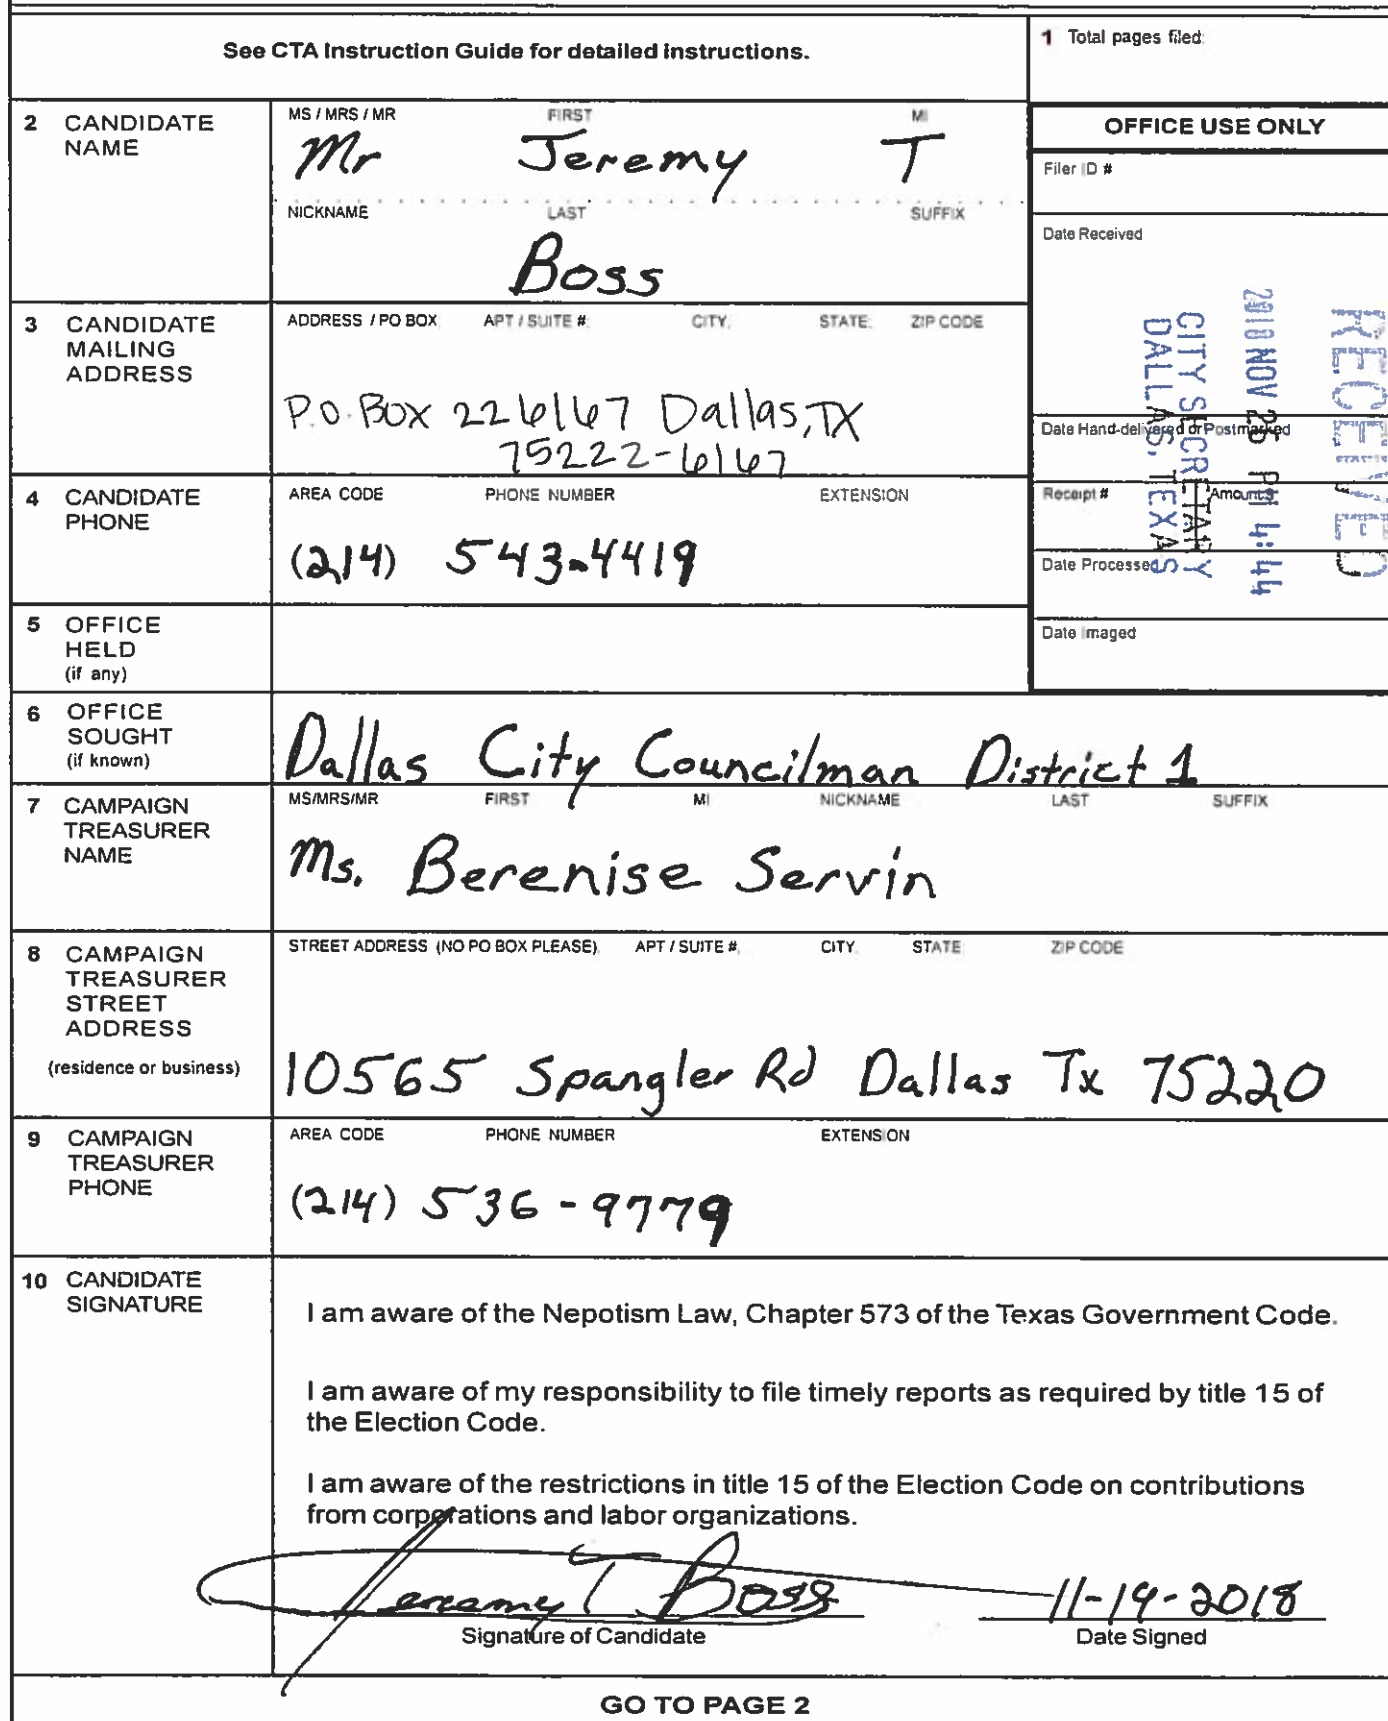 See CTA Instruction Guide for detailed instructions.
1 Total pages filed:
2 CANDIDATE NAME
MS / MRS / MR FIRST MI
Mr Jeremy T
NICKNAME LAST SUFFIX
Boss
OFFICE USE ONLY
Filer ID #
Date Received
RECEIVED
NOV 26 PM 4:44
CITY SECRETARY
DALLAS, TEXAS
Date Hand-delivered or Postmarked
Receipt # Amount $
Date Processed
Date Imaged
3 CANDIDATE MAILING ADDRESS
ADDRESS / PO BOX; APT / SUITE #; CITY; STATE; ZIP CODE
P.O. BOX 226167 Dallas, TX
75222-6167
4 CANDIDATE PHONE
AREA CODE PHONE NUMBER EXTENSION
(214) 543-4419
5 OFFICE HELD
(if any)
6 OFFICE SOUGHT
(if known)
Dallas City Councilman District 1
7 CAMPAIGN TREASURER NAME
MS/MRS/MR FIRST MI NICKNAME LAST SUFFIX
Ms. Berenise Servin
8 CAMPAIGN TREASURER STREET ADDRESS
(residence or business)
STREET ADDRESS (NO PO BOX PLEASE); APT / SUITE #; CITY; STATE; ZIP CODE
10565 Spangler Rd Dallas Tx 75220
9 CAMPAIGN TREASURER PHONE
AREA CODE PHONE NUMBER EXTENSION
(214) 536-9779
10 CANDIDATE SIGNATURE
I am aware of the Nepotism Law, Chapter 573 of the Texas Government Code.
I am aware of my responsibility to file timely reports as required by title 15 of
the Election Code.
I am aware of the restrictions in title 15 of the Election Code on contributions
from corporations and labor organizations.
Jeremy T Boss 11-19-2018
Signature of Candidate Date Signed
GO TO PAGE 2